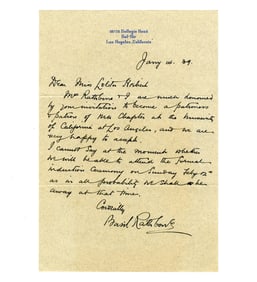 Bel-Air
Los Angeles, California
Jany 14. 39.
Dear Miss
Mrs Rathbone & I are much honoured
by your invitation to become a patroness
& patron of Chapter at the University
of California at Los Angeles, and we are
very happy to accept.
I cannot say at the moment whether
we will be able to attend the formal
induction ceremony on Sunday Feby 12th
as in all probability we shall be
away at that time.
Cordially
Basil Rathbone